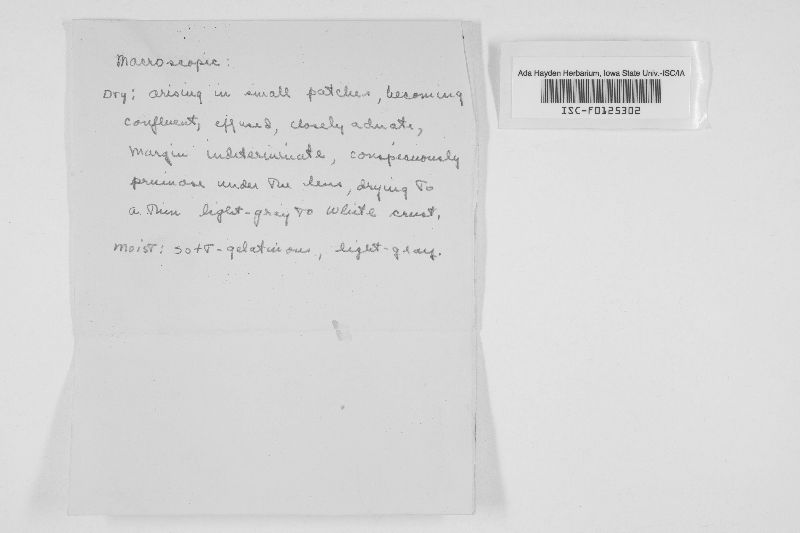 Macroscopic:
Dry: arising in small patches, becoming
confluent, effused, closely adnate,
margin indeterminate, conspicuously
pruinose under the lens, drying to
a thin light-gray to white crust.
Moist: soft-gelatinous, light-gray.
Ada Hayden Herbarium, Iowa State Univ.-ISC/IA
ISC-F0125302